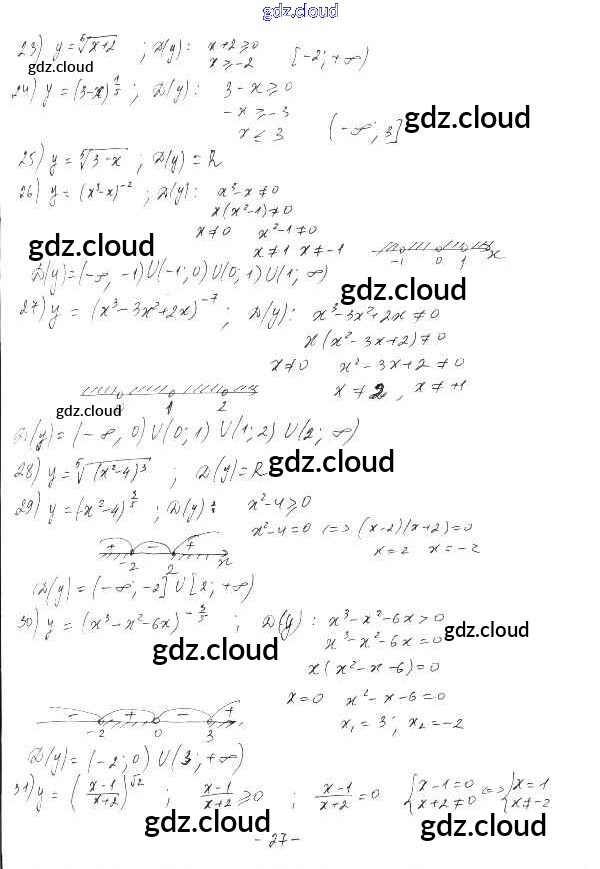 gdz.cloud
23) y = ⁶√(x+2) ; D(y): x+2 ⩾ 0
x ⩾ -2 [-2; +∞)
gdz.cloud
24) y = (3-x)^(1/5) ; D(y): 3-x ⩾ 0
-x ⩾ -3
x ⩽ 3 (-∞; 3]
gdz.cloud
25) y = ⁵√(3-x) ; D(y) = R
26) y = (x³-x)^(-2) ; D(y): x³-x ≠ 0
x(x²-1) ≠ 0
x ≠ 0 x²-1 ≠ 0
x ≠ 1 x ≠ -1
-1 0 1 x
gdz.cloud
D(y) = (-∞, -1) U (-1; 0) U (0; 1) U (1; ∞)
gdz.cloud
27) y = (x³-3x²+2x)^(-7) ; D(y): x³-3x²+2x ≠ 0
x(x²-3x+2) ≠ 0
x ≠ 0 x²-3x+2 ≠ 0
x ≠ 2, x ≠ +1
0 1 2
gdz.cloud
D(y) = (-∞, 0) U (0; 1) U (1; 2) U (2; ∞)
28) y = ⁵√((x²-4)³) ; D(y) = R
gdz.cloud
29) y = (x²-4)^(3/5) ; D(y): x²-4 ⩾ 0
x²-4 = 0 <=> (x-2)(x+2) = 0
x = 2 x = -2
+ - +
-2 2 x
D(y) = (-∞; -2] U [2; +∞)
30) y = (x³-x²-6x)^(-3/5) ; D(y): x³-x²-6x > 0
x³-x²-6x = 0
gdz.cloud
gdz.cloud
x(x²-x-6) = 0
x = 0 x²-x-6 = 0
x₁ = 3; x₂ = -2
- + - +
-2 0 3
D(y) = (-2; 0) U (3; +∞)
gdz.cloud
31) y = ((x-1)/(x+2))^(√2) ; (x-1)/(x+2) ⩾ 0 ; (x-1)/(x+2) = 0 {x-1=0 <=> {x=1
{x+2≠0 {x≠-2
gdz.cloud
gdz.cloud
- 27 -